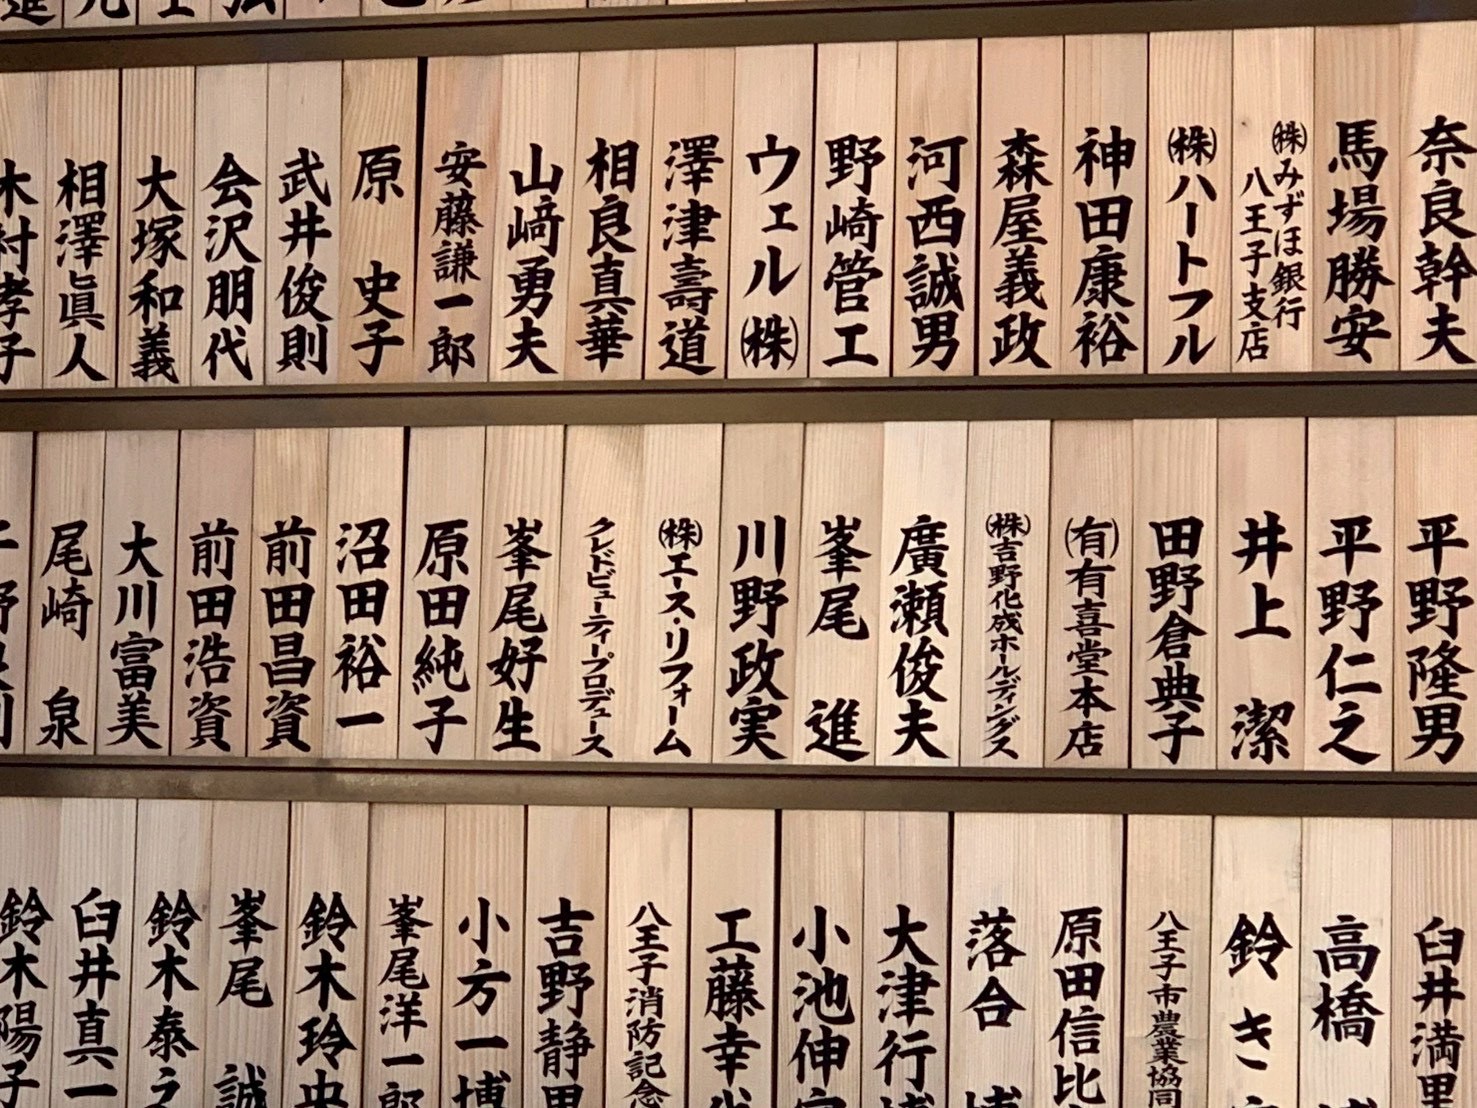 奈良幹夫
馬場勝安
㈱みずほ銀行
八王子支店
㈱ハートフル
神田康裕
森屋義政
河西誠男
野崎管工
ウェル㈱
澤津壽道
相良真華
山﨑勇夫
安藤謙一郎
原 史子
武井俊則
会沢朋代
大塚和義
相澤眞人
木村孝子
平野隆男
平野仁之
井上 潔
田野倉典子
㈲有喜堂本店
㈱吉野化成ホールディングス
廣瀬俊夫
峯尾 進
川野政実
㈱エース・リフォーム
クレドビューティープロデュース
峯尾好生
原田純子
沼田裕一
前田昌資
前田浩資
大川富美
尾崎 泉
臼井満里
高橋
鈴き
八王子市農業協同
原田信比
落合 博
大津行
小池伸
工藤幸
八王子消防記念
吉野静男
小方一博
峯尾洋一郎
鈴木玲央
峯尾 誠
鈴木泰
臼井真一
鈴木陽子